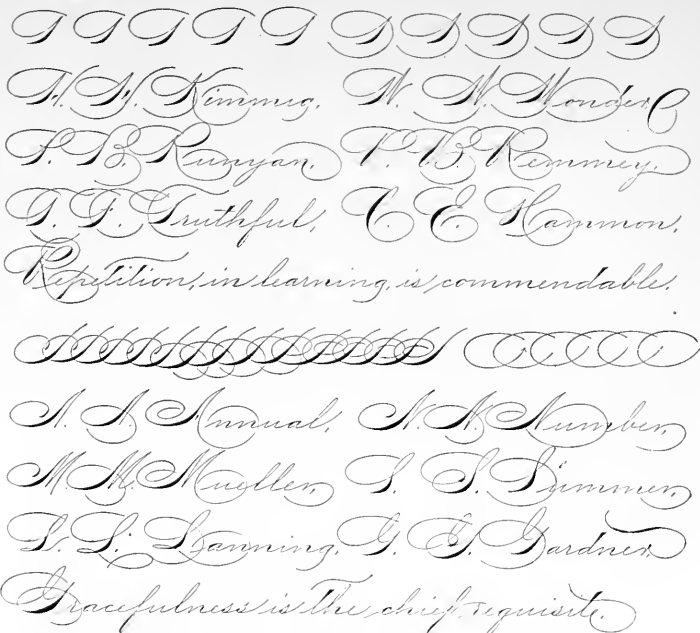 H. H. Kimmig. W. W. Wonder.
P. B. Runyan. P. B. Remmey.
T. F. Truthful. C. E. Hammon.
Repetition, in learning, is commendable.
A. A. Annual. N. N. Number.
M. M. Mueller. S. S. Summer.
L. L. Lanning. G. G. Gardner.
Gracefulness is The chief requisite.